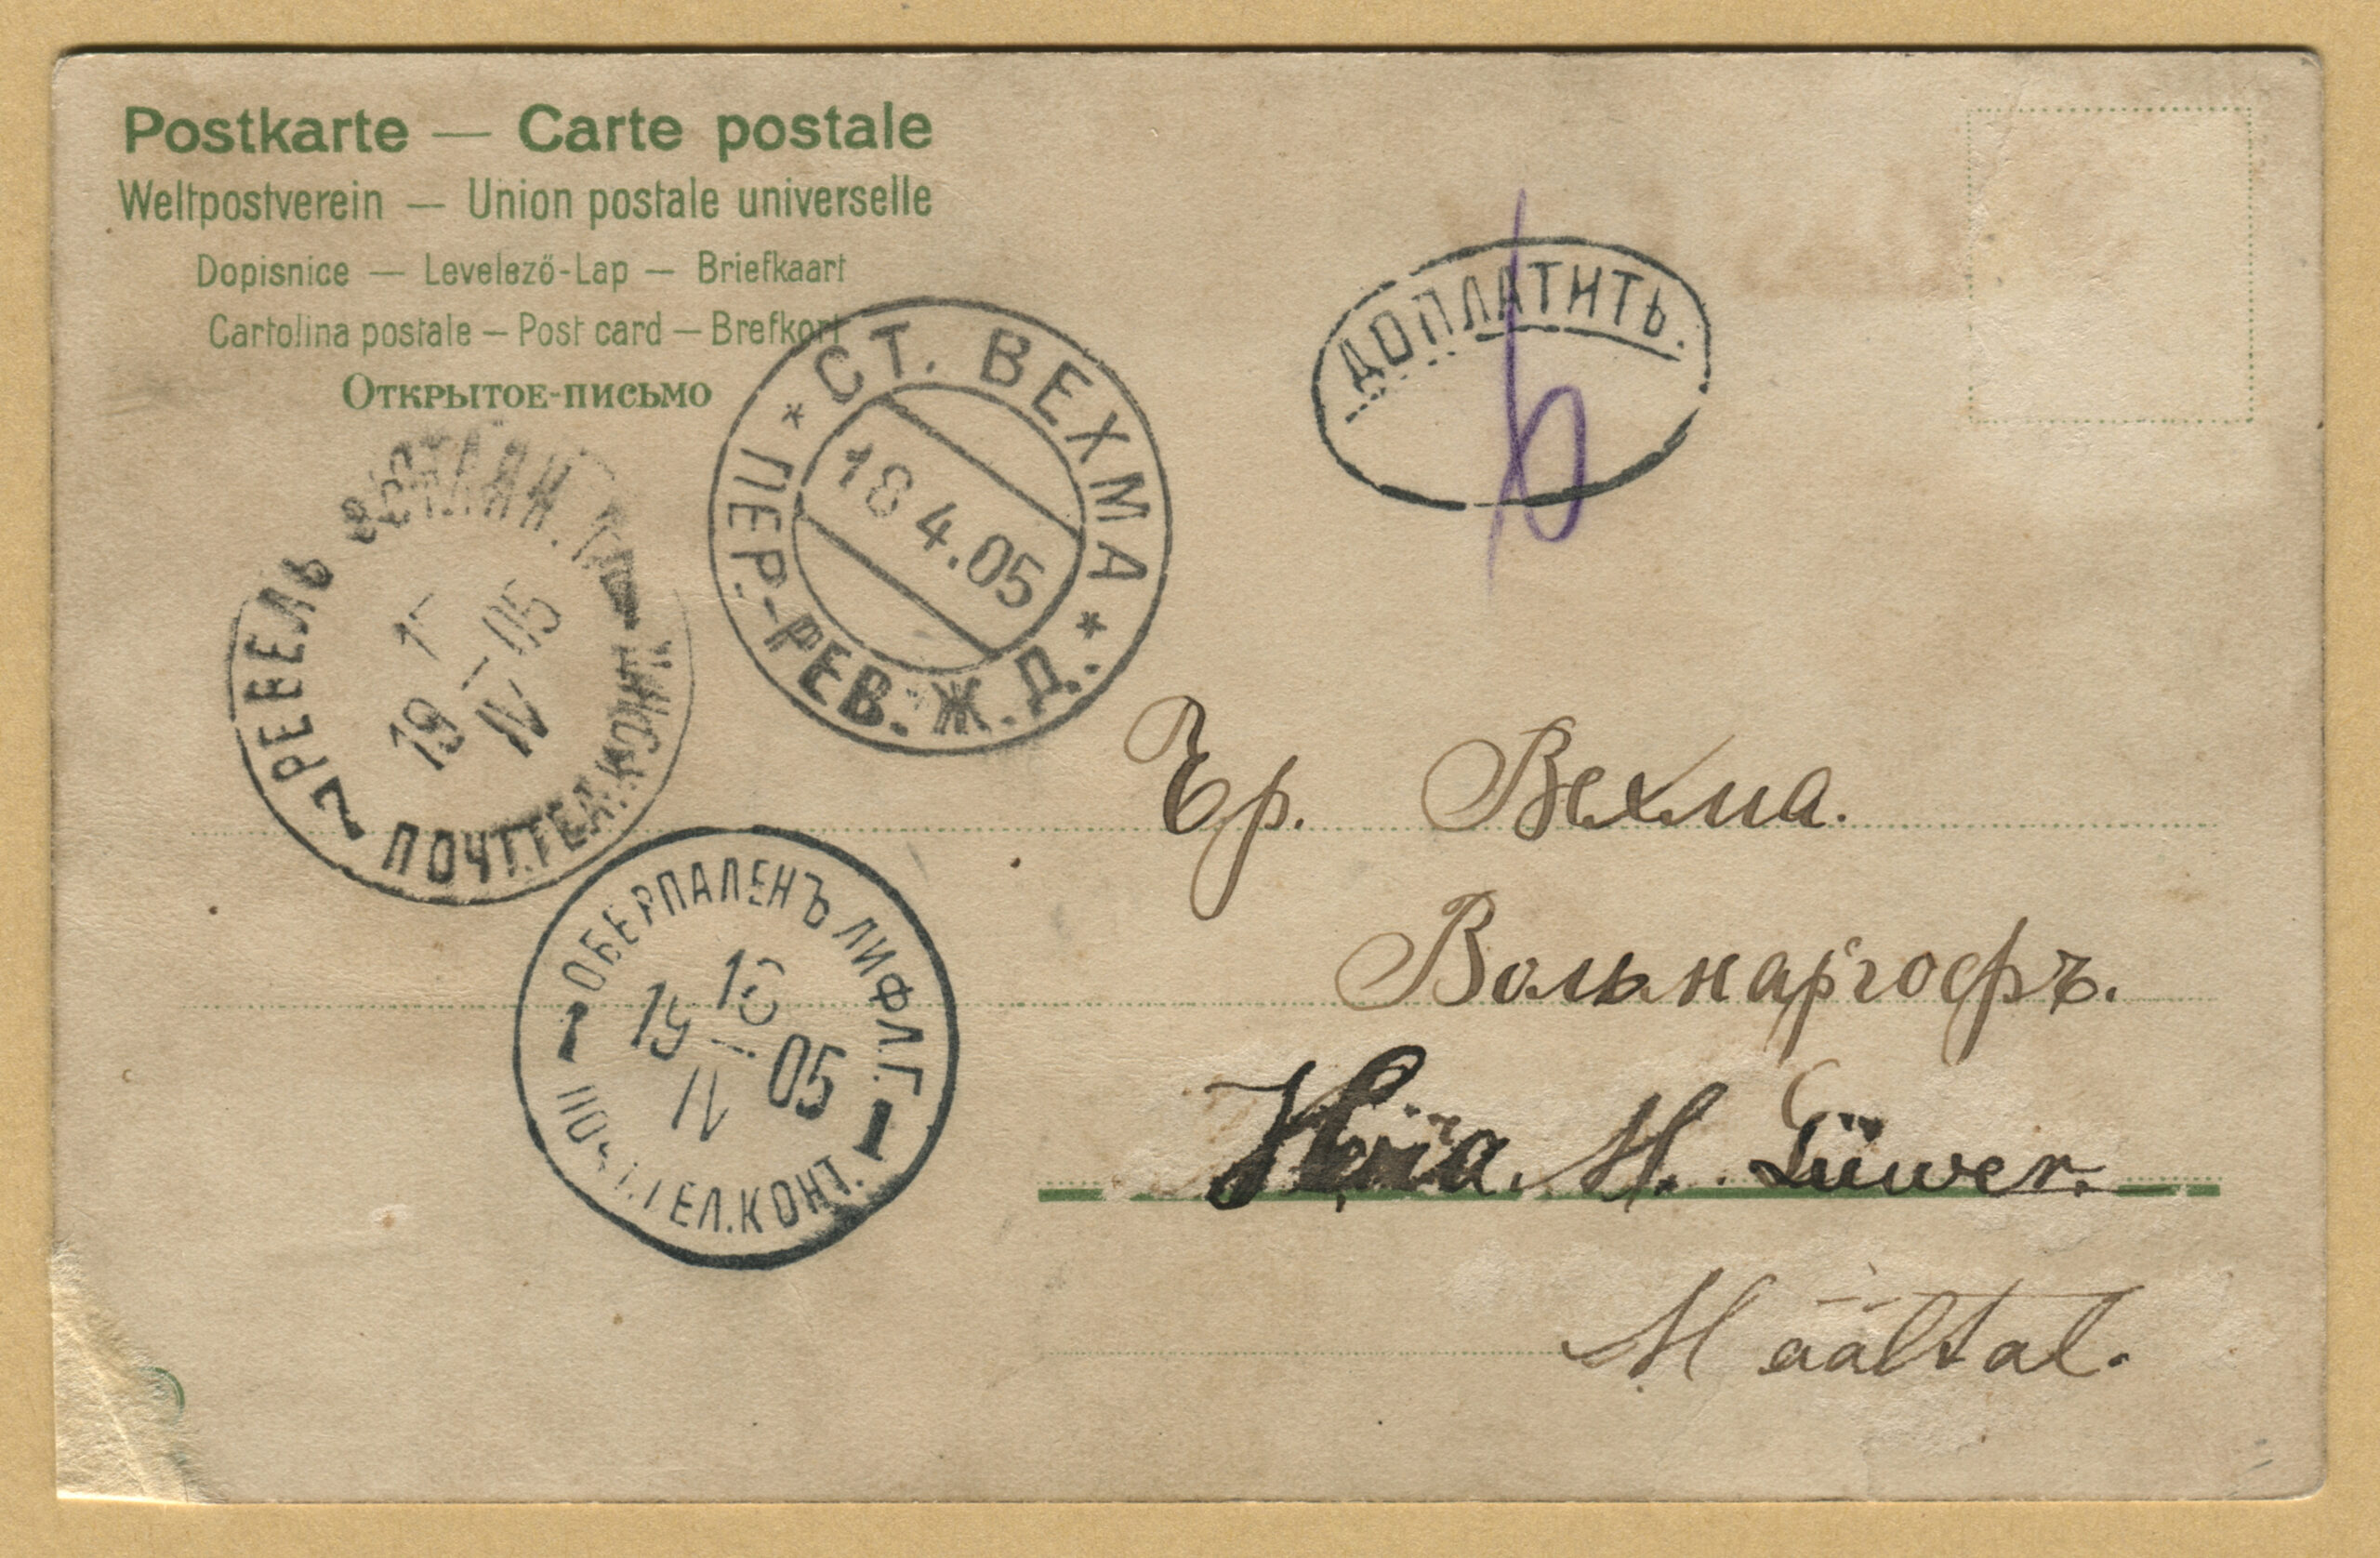 Postkarte — Carte postale
Weltpostverein — Union postale universelle
Dopisnice — Levelező-Lap — Briefkaart
Cartolina postale — Post card — Brefkort
Открытое-письмо
СТ. ВЕХМА
18 4.05
* ПЕР.-РЕВ. Ж.Д. *
ДОПЛАТИТЬ.
6
РЕВЕЛЬ ЭСТЛЯН.
19 IV 05
ПОЧТ.ТЕЛ.КОНТ.
ОБЕРПАЛЕНЪ ЛИФЛ.Г.
19 05
IV
1 ПОЧТ.ТЕЛ.КОНТ. 1
Вехма.
M. Lüwer.
Määltal.